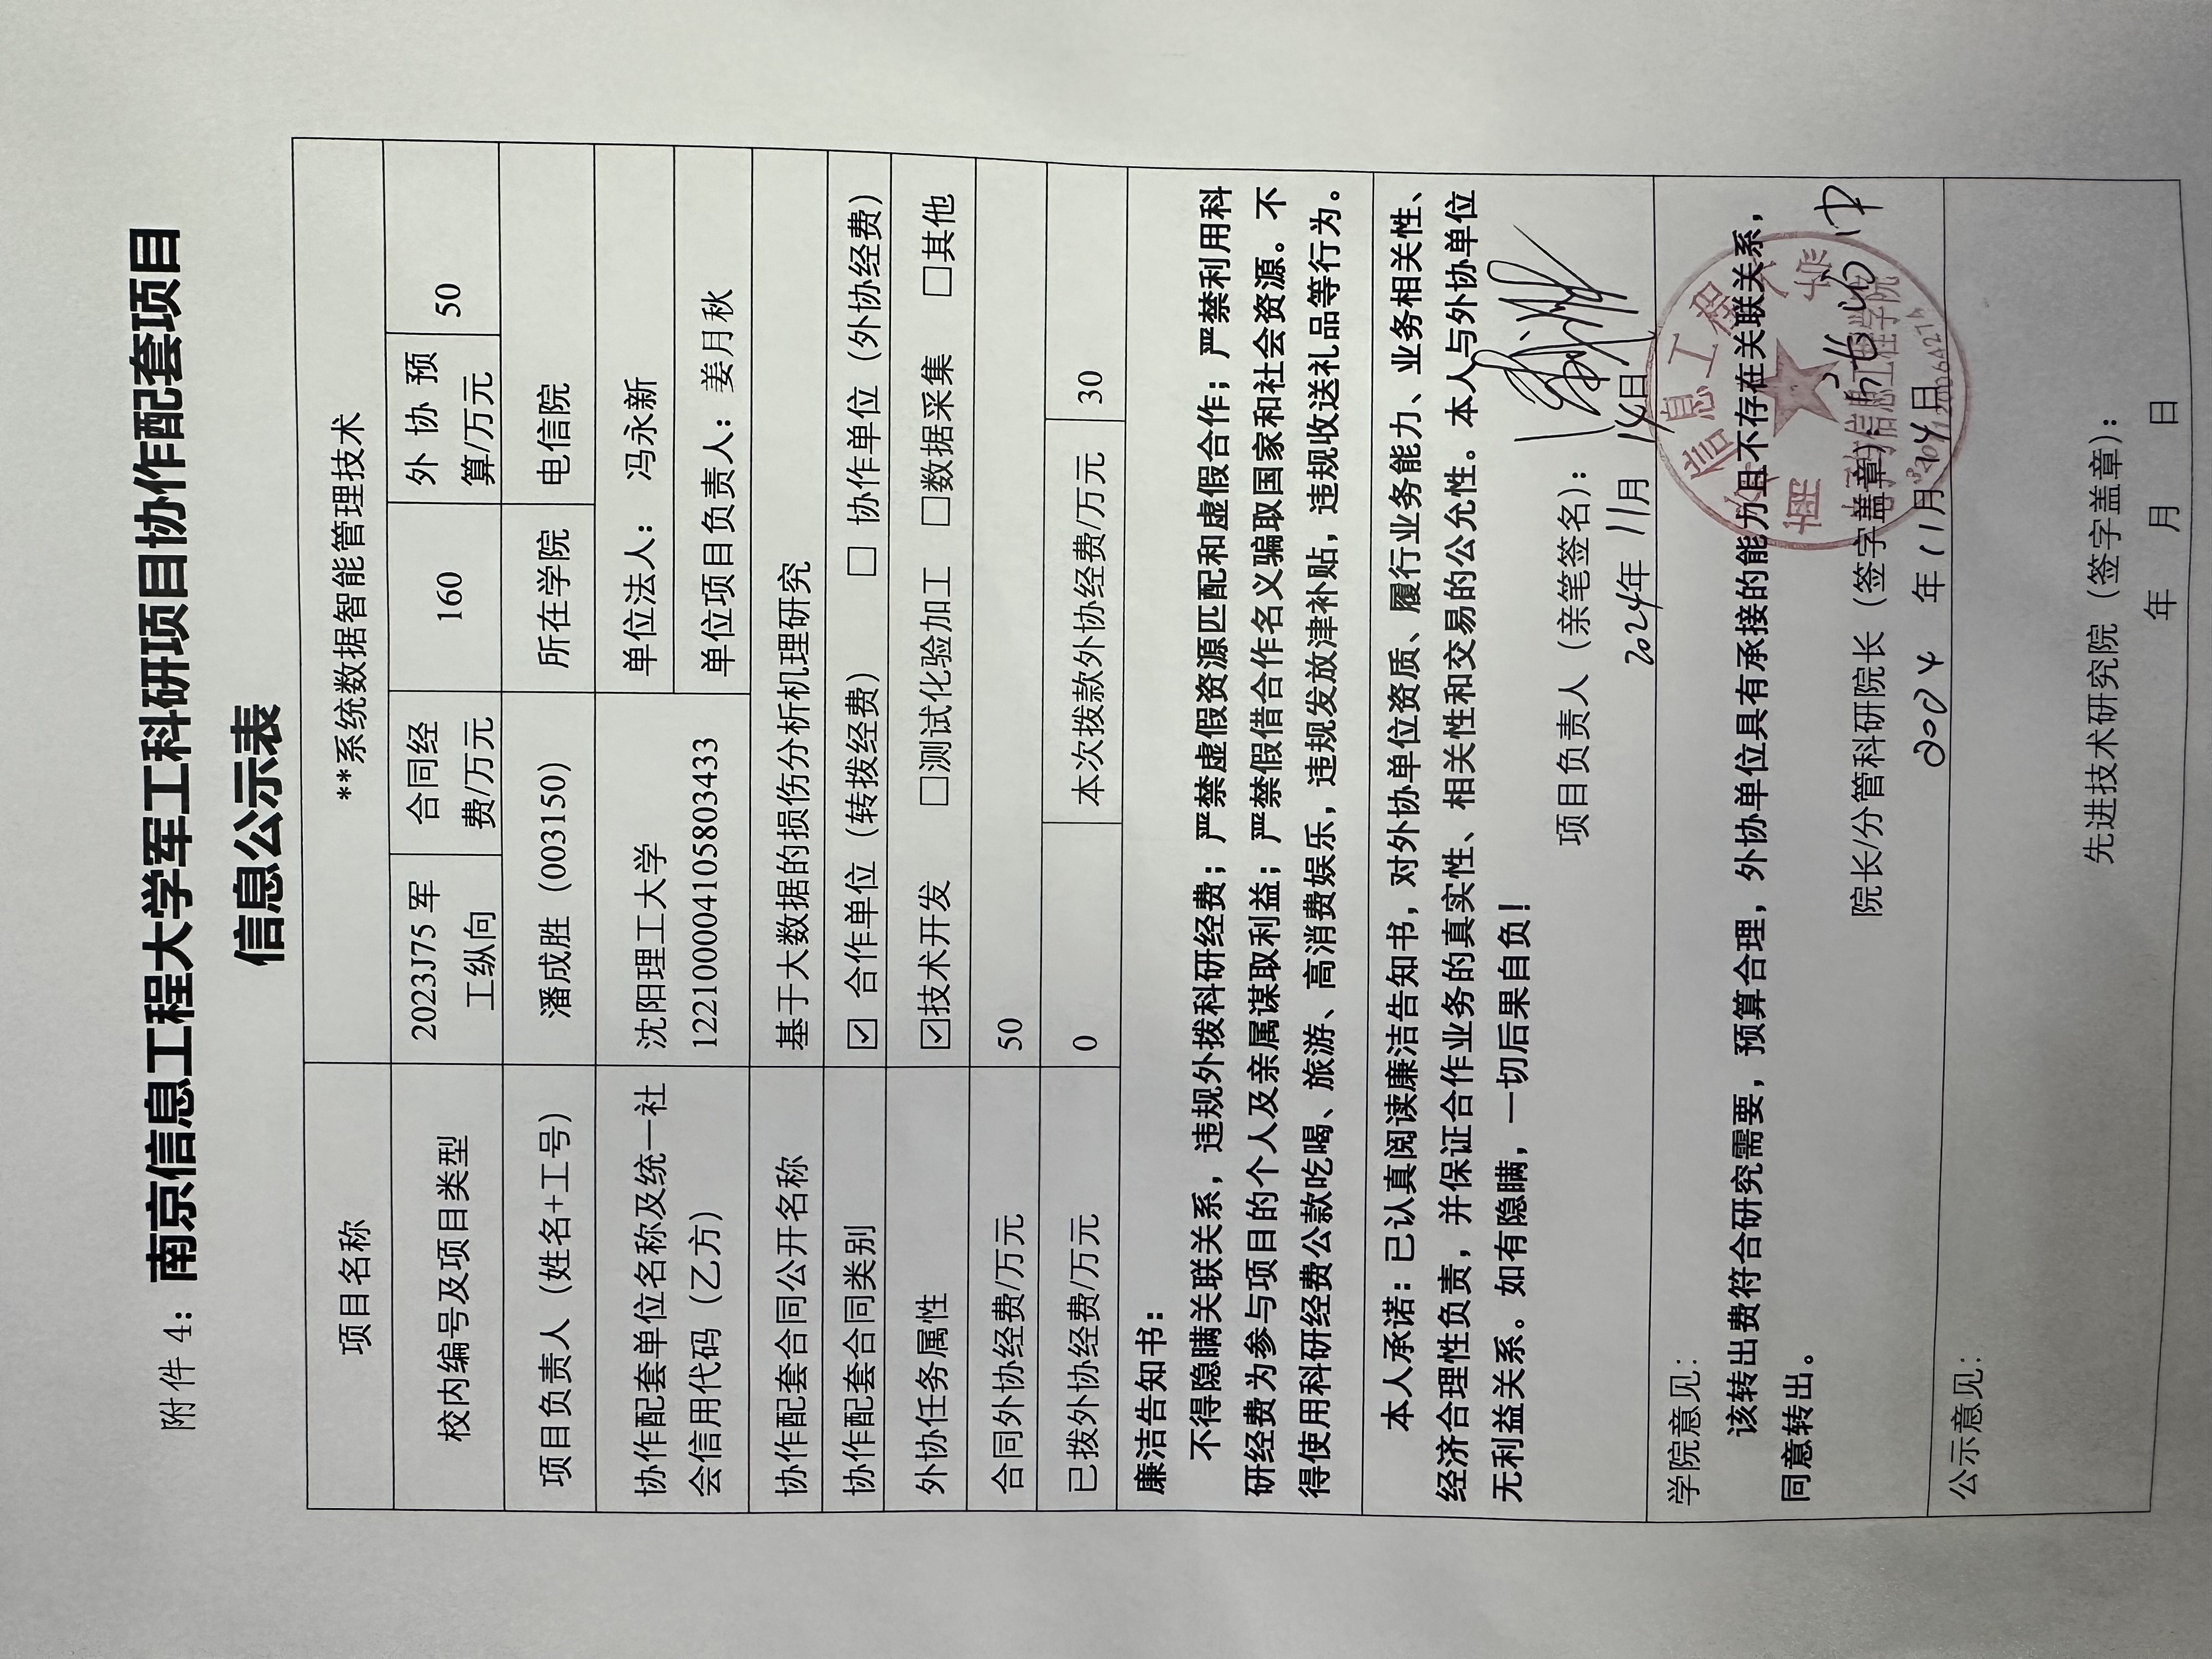 附件 4：南京信息工程大学军工科研项目协作配套项目
信息公示表
项目名称 **系统数据智能管理技术
校内编号及项目类型 2023J75 军工纵向 合同经费/万元 160 外协预算/万元 50
项目负责人（姓名+工号） 潘成胜（003150） 所在学院 电信院
协作配套单位名称及统一社 沈阳理工大学 单位法人： 冯永新
会信用代码（乙方） 122100004105803433 单位项目负责人：姜月秋
协作配套合同公开名称 基于大数据的损伤分析机理研究
协作配套合同类别 ☑ 合作单位（转拨经费） □ 协作单位（外协经费）
外协任务属性 ☑技术开发 □测试化验加工 □数据采集 □其他
合同外协经费/万元 50
已拨外协经费/万元 0 本次拨款外协经费/万元 30
廉洁告知书：
不得隐瞒关联关系，违规外拨科研经费；严禁虚假资源匹配和虚假合作；严禁利用科
研经费为参与项目的个人及亲属谋取利益；严禁假借合作名义骗取国家和社会资源。不
得使用科研经费公款吃喝、旅游、高消费娱乐，违规发放津补贴，违规收送礼品等行为。
本人承诺：已认真阅读廉洁告知书，对外协单位资质、履行业务能力、业务相关性、
经济合理性负责，并保证合作业务的真实性、相关性和交易的公允性。本人与外协单位
无利益关系。如有隐瞒，一切后果自负！
项目负责人（亲笔签名）：
2024年 11月 14日
学院意见：
该转出费符合研究需要，预算合理，外协单位具有承接的能力且不存在关联关系，
同意转出。
院长/分管科研院长（签字盖章）：
2024 年 11月 14日
公示意见：
先进技术研究院（签字盖章）：
年 月 日